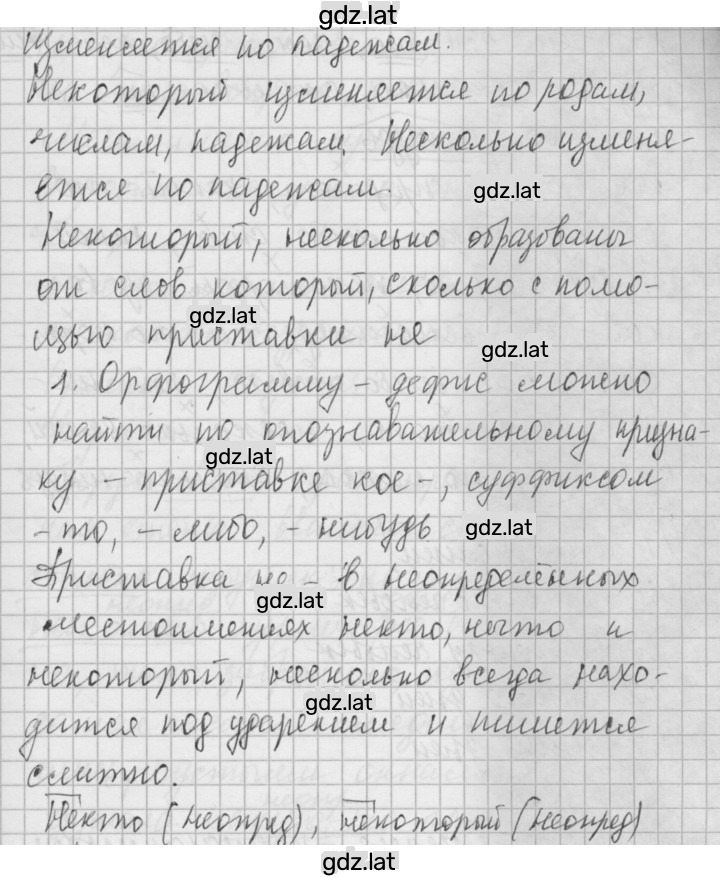 gdz.lat
Изменяется по падежам.
Некоторый изменяется по родам,
числам, падежам. Несколько изменя-
ется по падежам.
gdz.lat
Некоторый, несколько образованы
от слов который, сколько с помо-
gdz.lat
щью приставки не
gdz.lat
1. Орфограмму - дефис можно
найти по опознавательному призна-
gdz.lat
ку - приставке кое-, суффиксом
-то, -либо, -нибудь
gdz.lat
Приставка не- в неопределённых
gdz.lat
местоимениях некто, нечто и
некоторый, несколько всегда нахо-
gdz.lat
дится под ударением и пишется
слитно.
Некто (неопред), некоторый (неопред)
gdz.lat